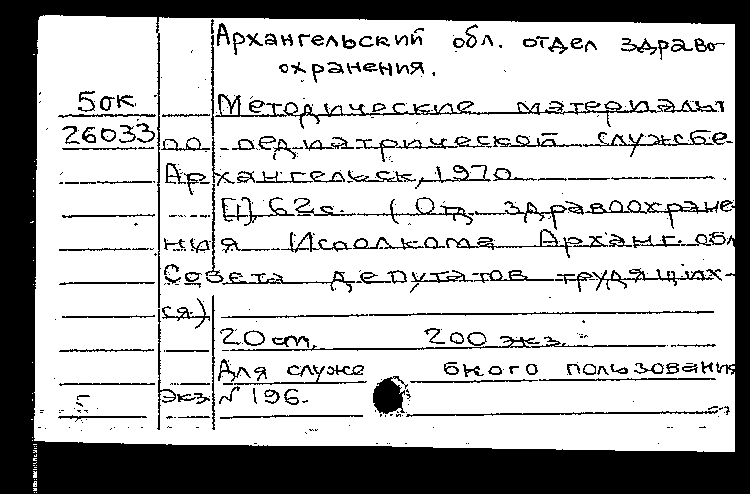 Архангельский обл. отдел здраво-
охранения.
5ок Методические материалы
26033 по педиатрической службе
Архангельск, 1970.
[1], 62с. (Отд. здравоохране-
ния Исполкома Арханг. обл
Совета депутатов трудящих-
ся.)
20 ст. 200 экз.
Для служе бного пользования
5 экз N 196.